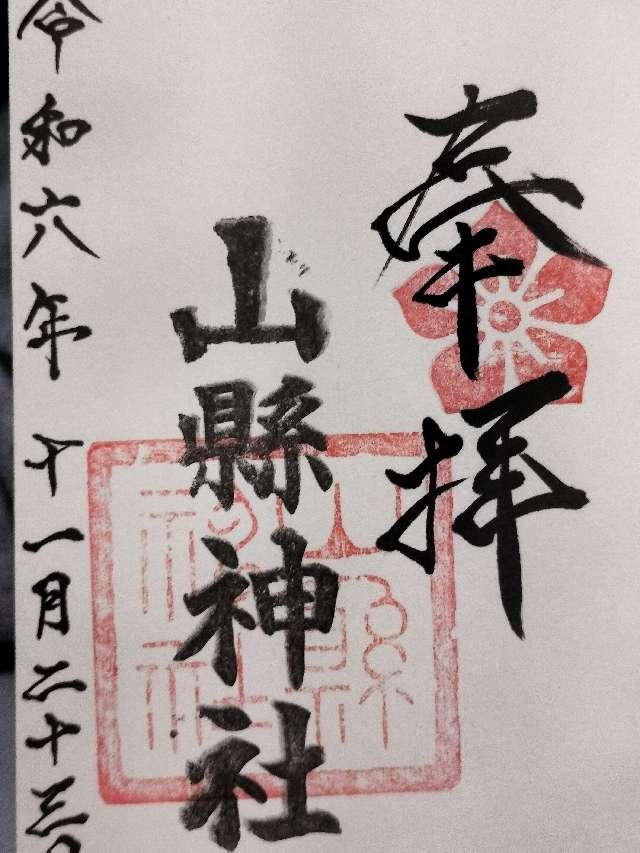 奉拝
山縣神社
山縣神社
令和六年十一月二十三